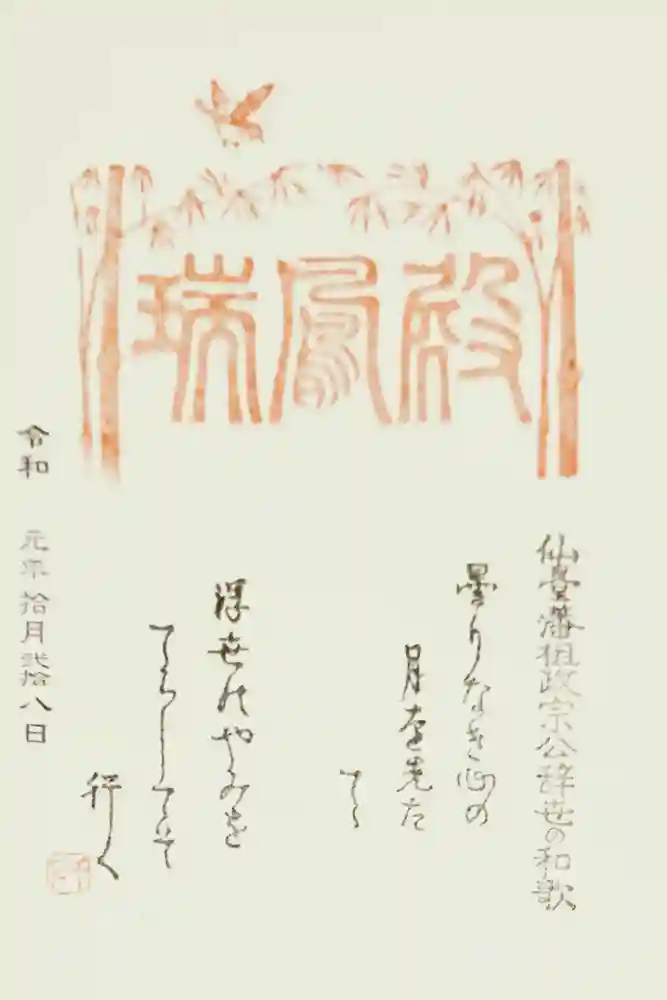 瑞鳳殿
仙臺藩祖政宗公辞世の和歌
曇りなき心の
月を先た
てゝ
浮世のやみを
てらしてそ
行く
令和 元年拾月弐拾八日